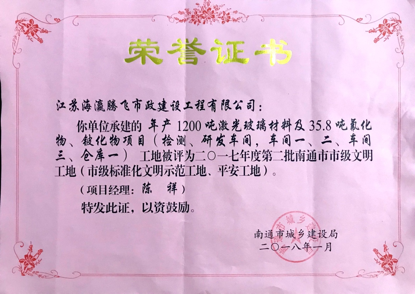 荣誉证书
江苏海瀛腾飞市政建设工程有限公司：
你单位承建的 年产1200吨激光玻璃材料及35.8吨氟化
物、铍化物项目（检测、研发车间，车间一、二、车间
三、仓库一） 工地被评为二〇一七年度第二批南通市市级文明
工地（市级标准化文明示范工地、平安工地）。
（项目经理：陈 祥）
特发此证，以资鼓励。
南通市城乡建设局
二〇一八年一月